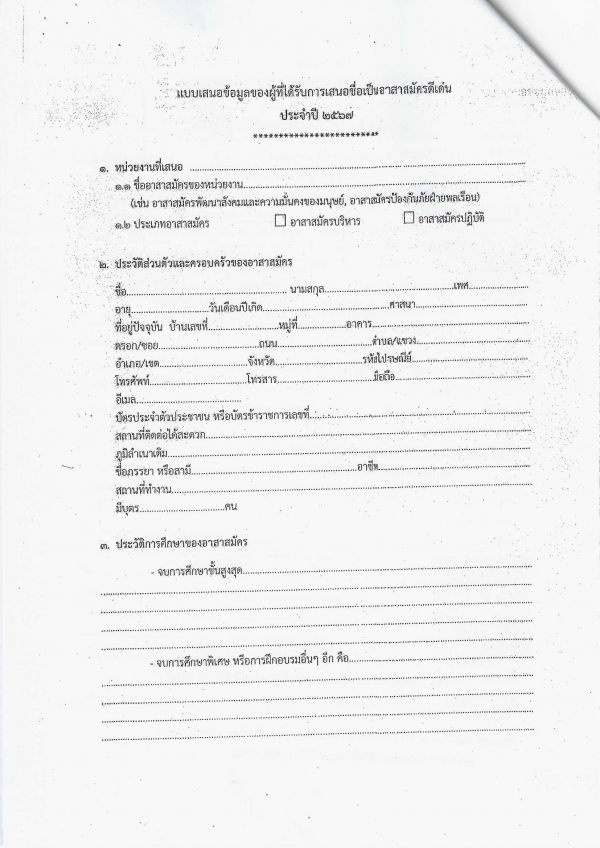 แบบเสนอข้อมูลของผู้ที่ได้รับการเสนอชื่อเป็นอาสาสมัครดีเด่น
ประจำปี ๒๕๖๗
************************
๑. หน่วยงานที่เสนอ ........................................
๑.๑ ชื่ออาสาสมัครของหน่วยงาน........................................
(เช่น อาสาสมัครพัฒนาสังคมและความมั่นคงของมนุษย์, อาสาสมัครป้องกันภัยฝ่ายพลเรือน)
๑.๒ ประเภทอาสาสมัคร ☐ อาสาสมัครบริหาร ☐ อาสาสมัครปฏิบัติ
๒. ประวัติส่วนตัวและครอบครัวของอาสาสมัคร
ชื่อ.................... นามสกุล....................เพศ....................
อายุ....................วันเดือนปีเกิด....................ศาสนา....................
ที่อยู่ปัจจุบัน บ้านเลขที่....................หมู่ที่....................อาคาร....................
ตรอก/ซอย....................ถนน....................ตำบล/แขวง....................
อำเภอ/เขต....................จังหวัด....................รหัสไปรษณีย์....................
โทรศัพท์....................โทรสาร....................มือถือ....................
อีเมล....................
บัตรประจำตัวประชาชน หรือบัตรข้าราชการเลขที่....................
สถานที่ติดต่อได้สะดวก....................
ภูมิลำเนาเดิม....................
ชื่อภรรยา หรือสามี....................อาชีพ....................
สถานที่ทำงาน....................
มีบุตร....................คน
๓. ประวัติการศึกษาของอาสาสมัคร
- จบการศึกษาชั้นสูงสุด....................
- จบการศึกษาพิเศษ หรือการฝึกอบรมอื่นๆ อีก คือ....................